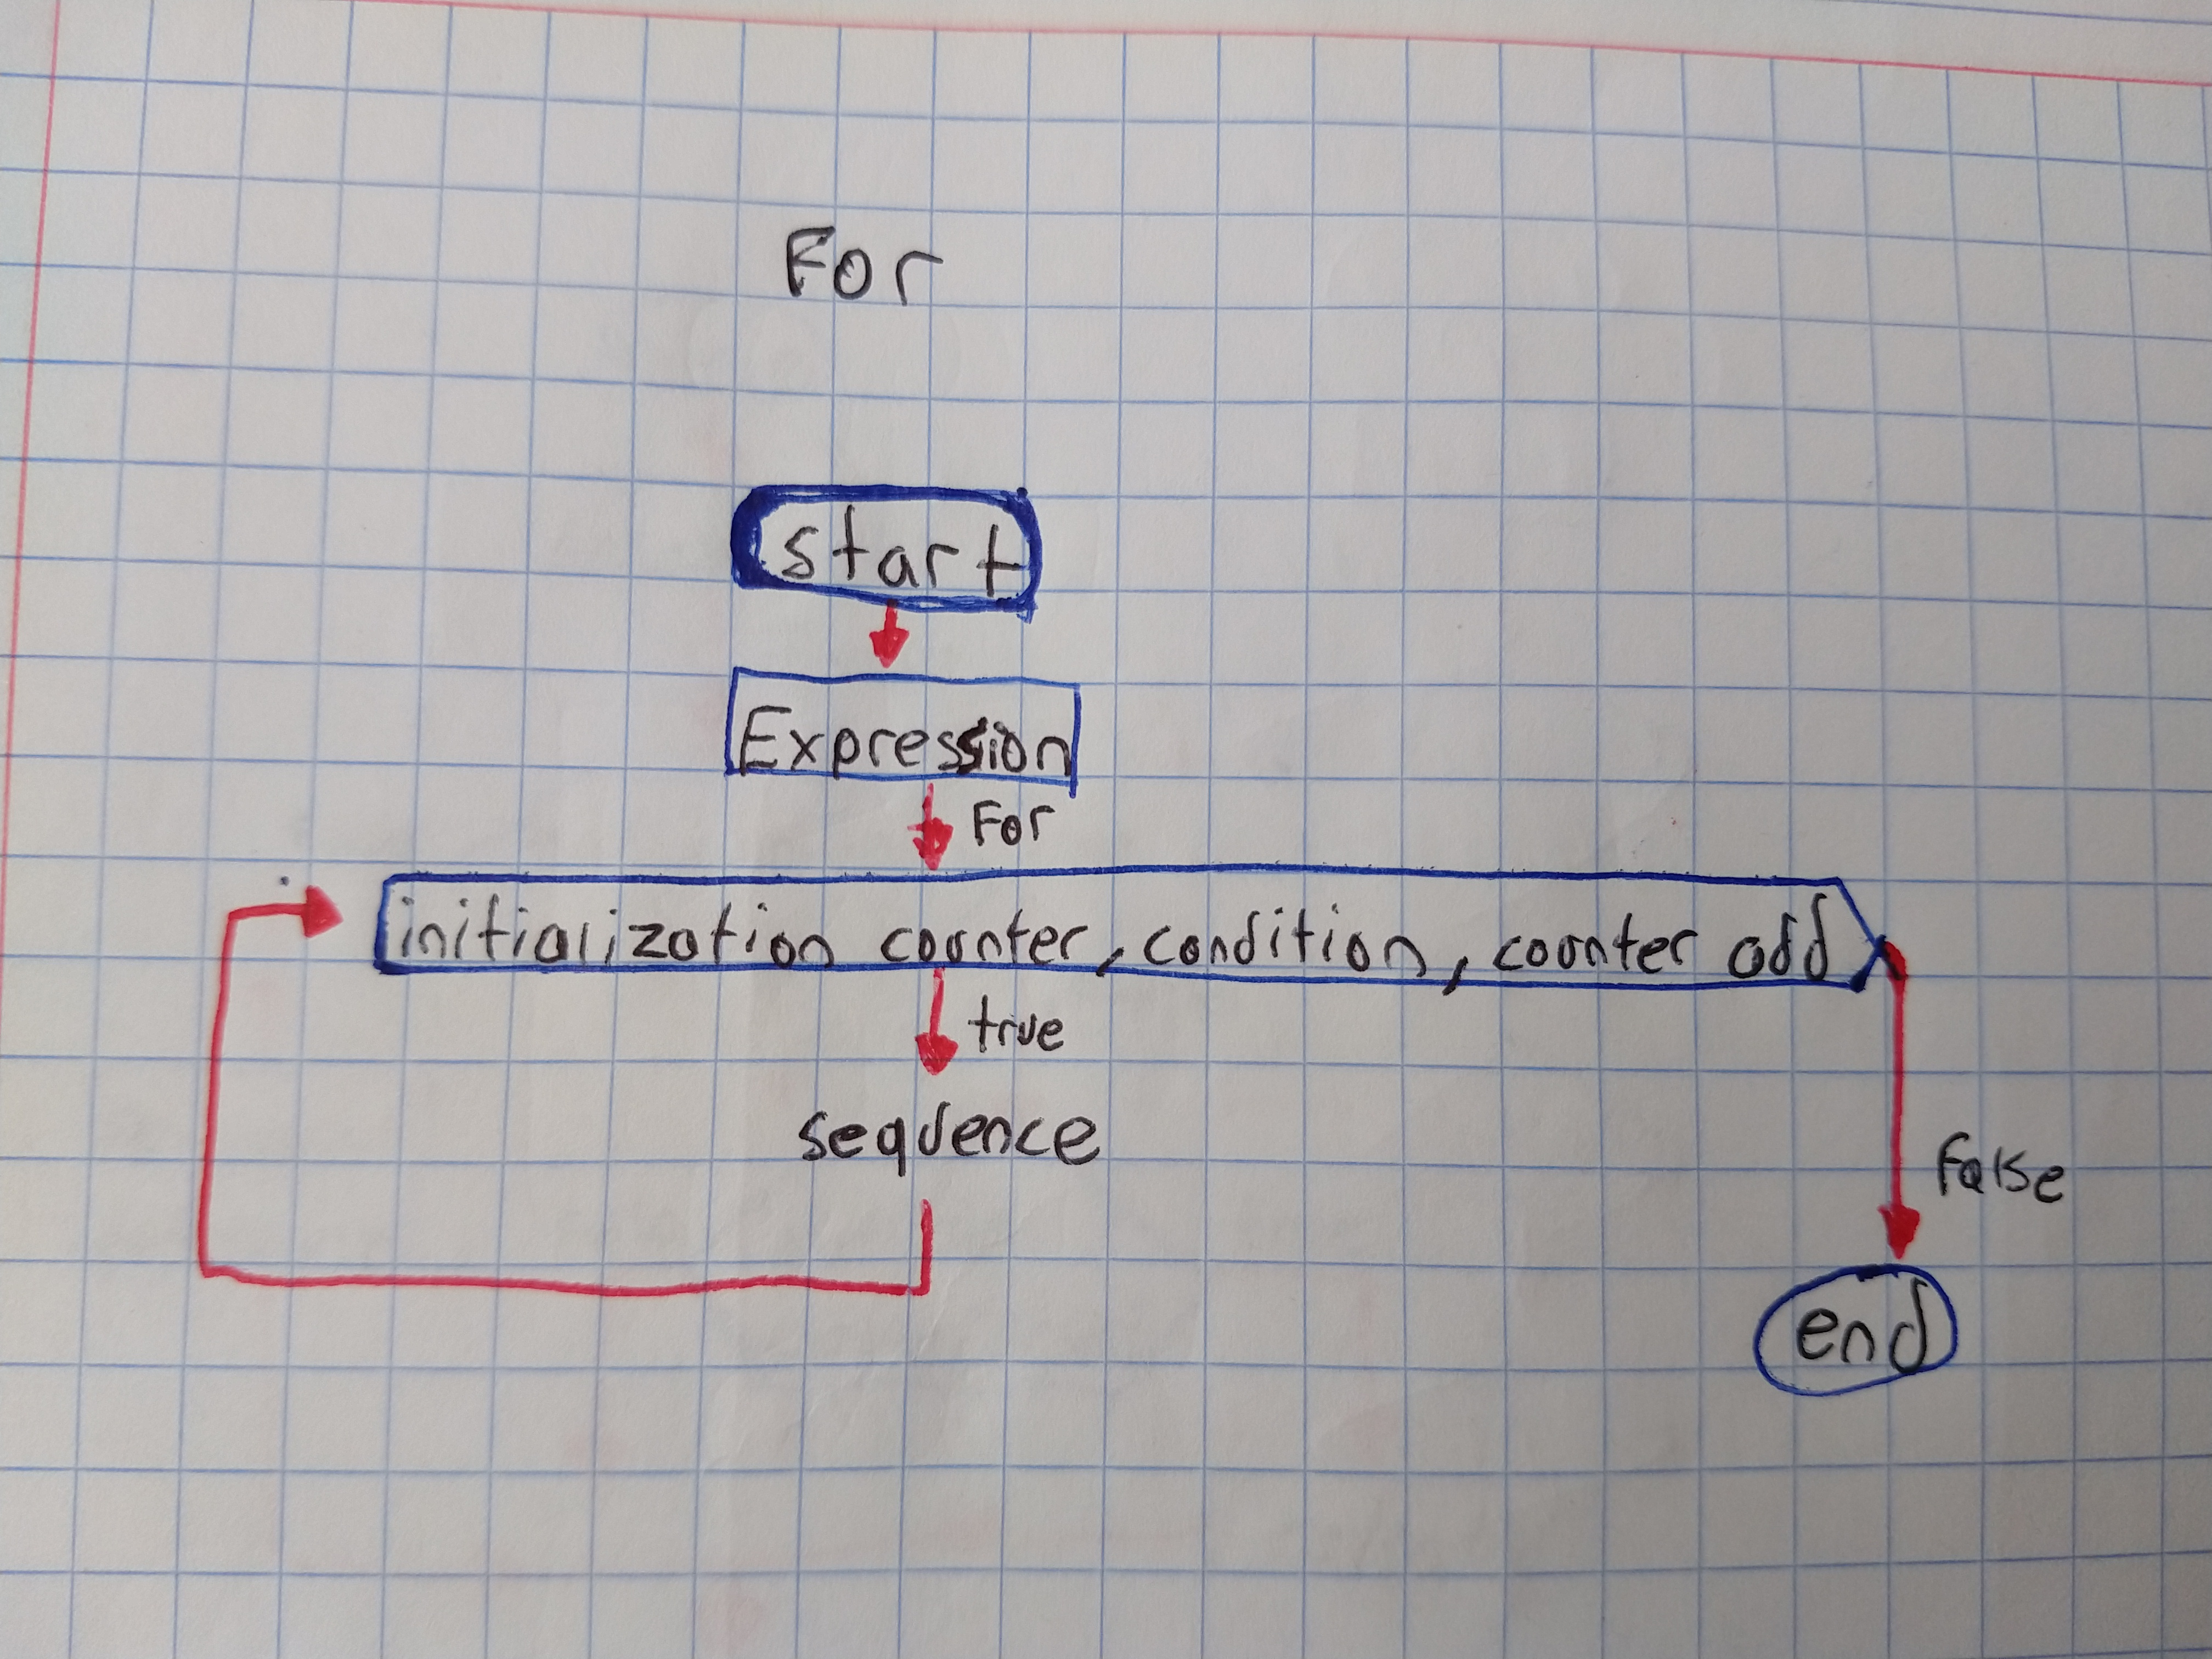 For
start
Expression
For
initialization counter, condition, counter add
true
sequence
False
end